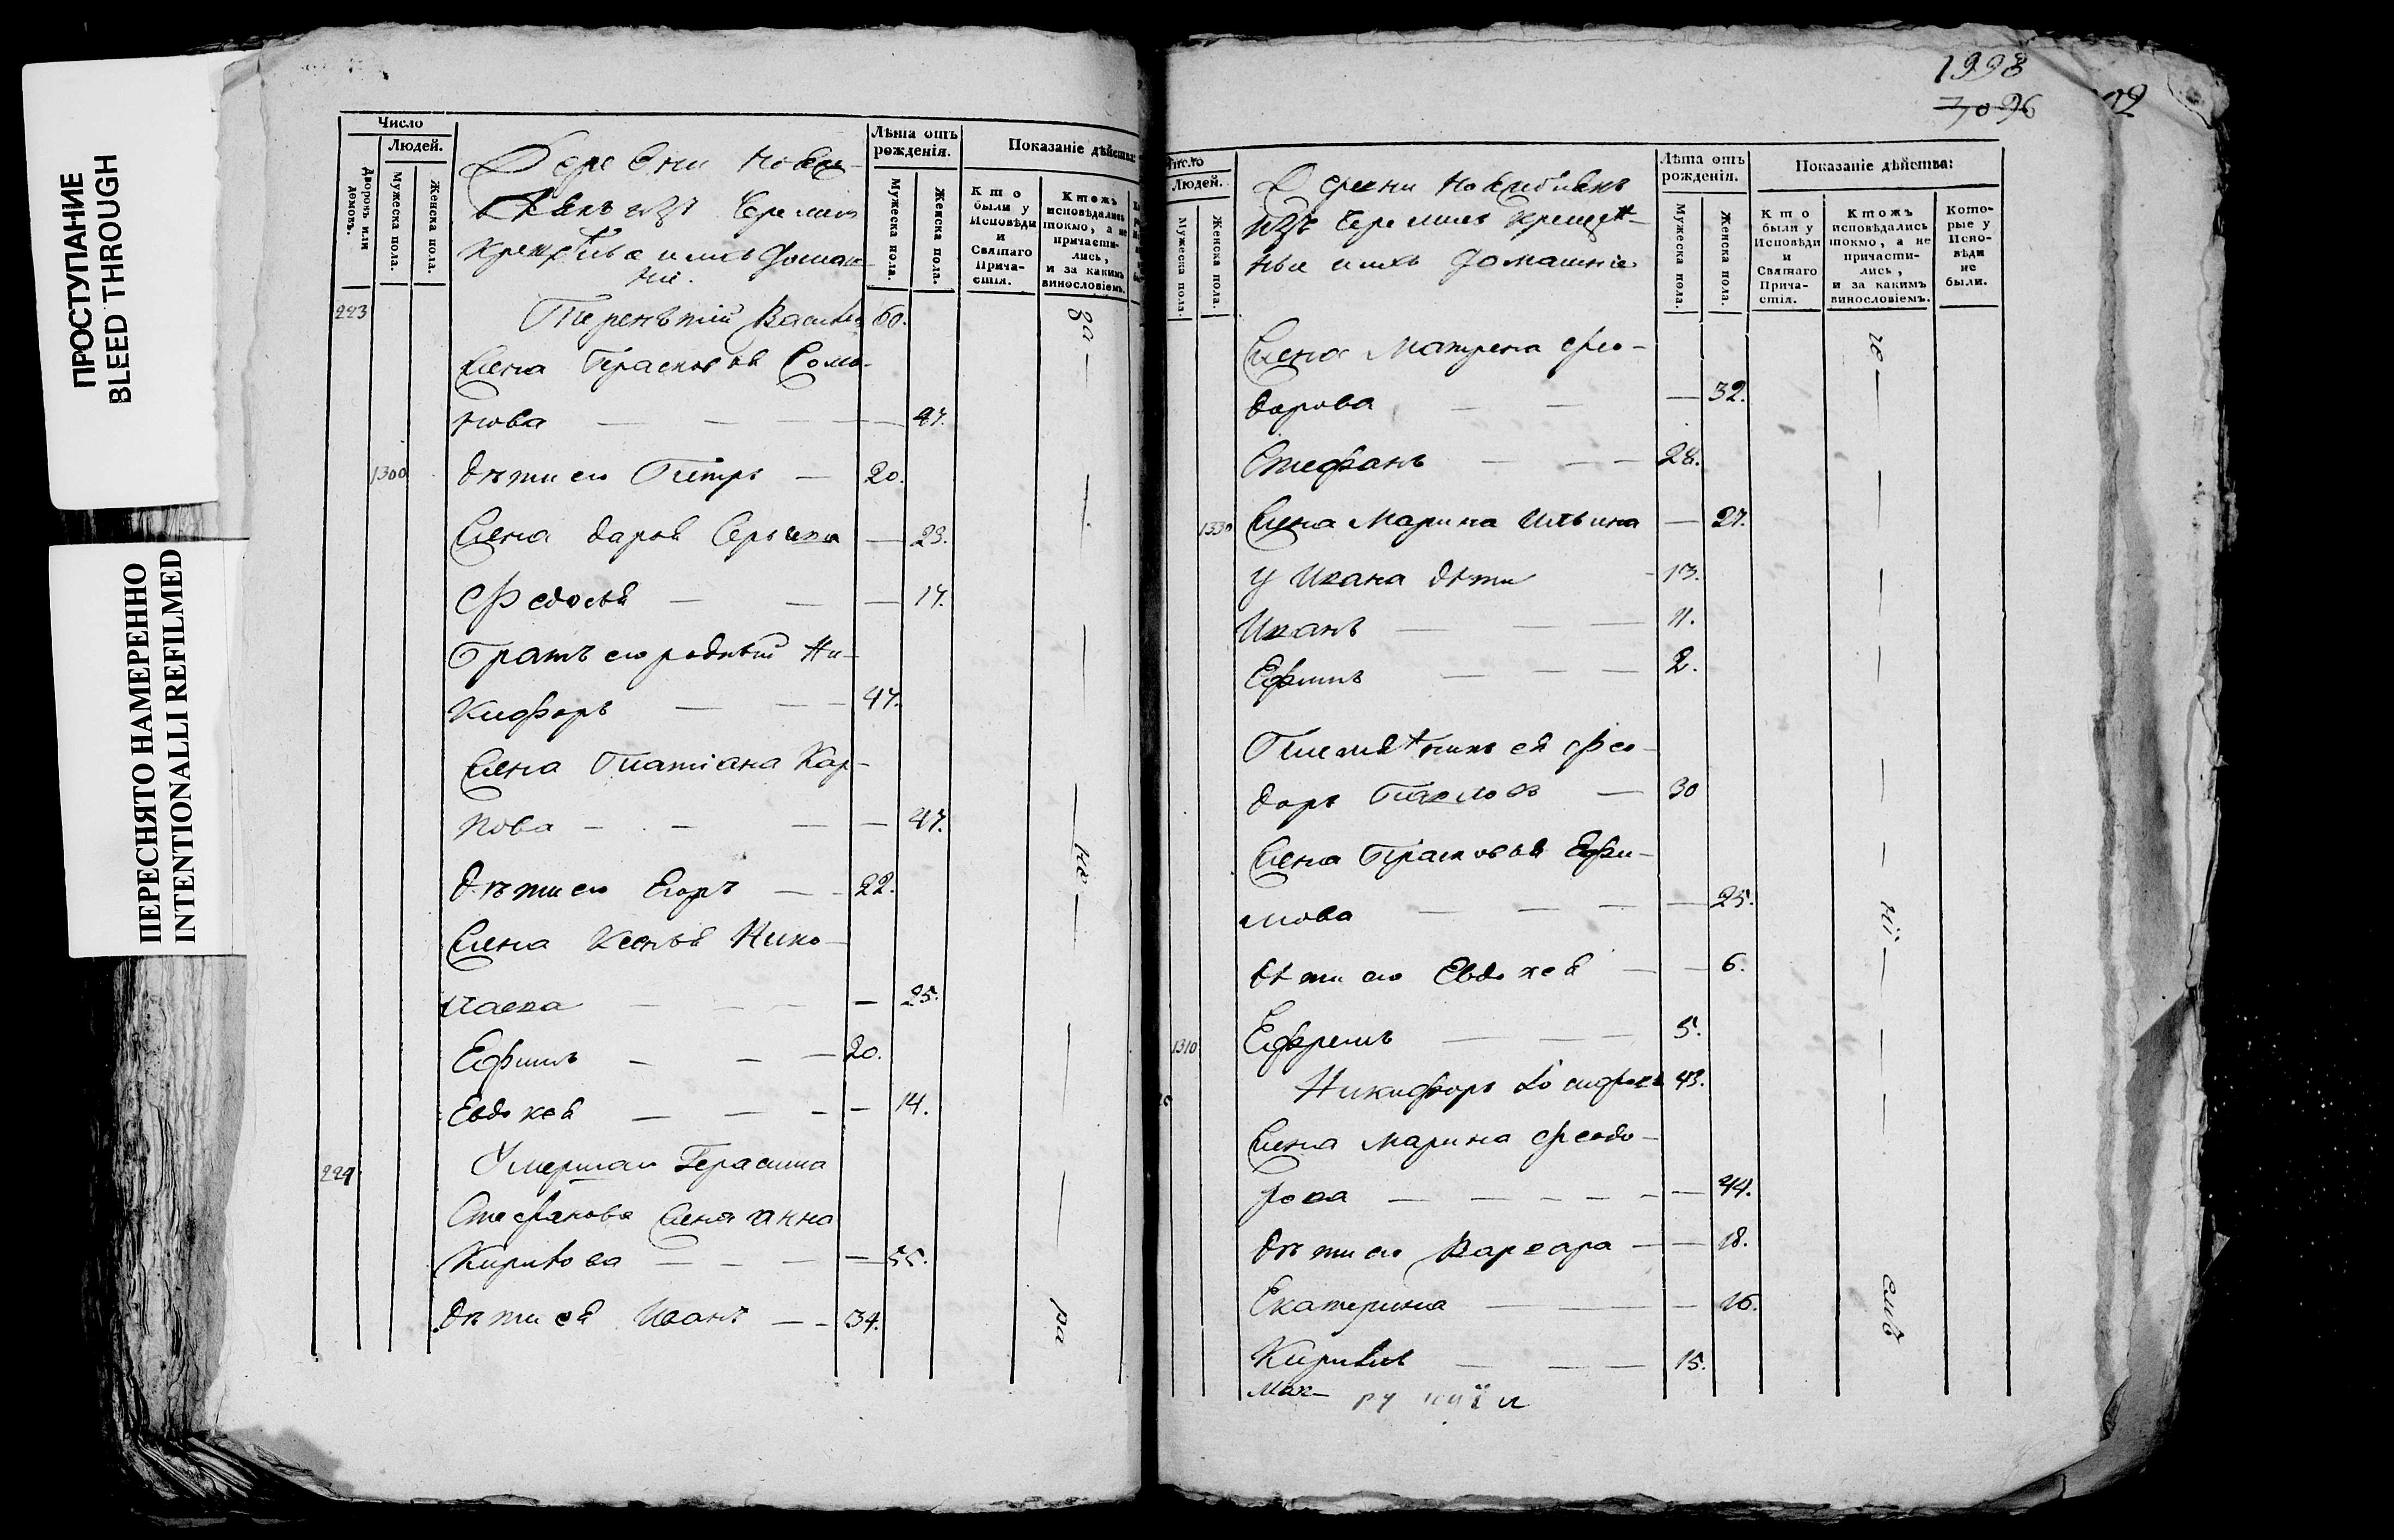 ПРОСТУПАНИЕ
BLEED THROUGH
ПЕРЕСНЯТО НАМЕРЕННО
INTENTIONALLI REFILMED
Число
Людей.
Дворовъ или домовъ.
Мужеска пола.
Женска пола.
Деревни Новы
изъ Черемисъ
ихъ домаш
ніе.
Лѣта отъ рожденія.
Мужеска пола.
Женска пола.
Показаніе дѣйства:
Кто были у Исповѣди и Святаго Прича- стія.
Ктожъ исповѣдались токмо, а не причасти- лись, и за какимъ винословіемъ.
223 Терентій Василь 60.
Жена Прасковья Семе-
нова — — — — 47.
1300 дѣти его Петръ — 20.
Жена Дарья Сергѣева — 23.
Федосья — — — 17.
Братъ его родный Ни-
кифоръ — — — 47.
Жена Татіана Кар-
пова — — — — 47.
дѣти его Егоръ — — 22.
Жена Ксенья Нико-
лаева — — — — 25.
Ефимъ — — — 20.
Евдокея — — — — 14.
224 Умершаго Герасима
Стефанова Жена Анна
Кирилова — — — — 55.
дѣти ея Иванъ — — 34.
за —
но —
ра
1998
7096
Число
Людей.
Мужеска пола.
Женска пола.
Деревни
изъ Черемисъ крещен-
ные ихъ домашніе
Лѣта отъ рожденія.
Мужеска пола.
Женска пола.
Показаніе дѣйства:
Кто были у Исповѣди и Святаго Прича- стія.
Ктожъ исповѣдались токмо, а не причасти- лись, и за какимъ винословіемъ.
Кото- рые у Испо- вѣди не были.
Жена Матрена Фео-
дорова — — — 32.
Стефанъ — — — 28.
1330 Жена Марина Ильина — 27.
У Ивана дѣти - 13.
Иванъ — — — 11.
Ефимъ — — — 2.
Племянникъ ея Фео-
доръ Павловъ — 30
Жена Прасковья Ефи-
мова — — — — 25.
дѣти его Евдокея — — 6.
1310 Ефремъ — — — 5.
Никифоръ 43.
Жена Марина Феодо-
рова — — — — — — 44.
дѣти его Варвара — — 18.
Екатерина — — — 16.
Кирилъ — — — 15.
Мак-
ніи —